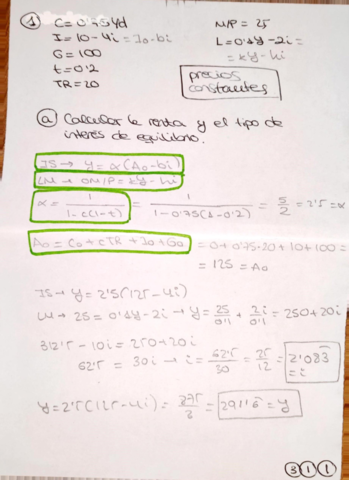 ① C = 0'75Yd M/P = 25
I = 10 - 4i = I0 - bi L = 0'1Y - 2i =
G = 100 = kY - hi
t = 0'2 precios
TR = 20 constantes
ⓐ Calcular la renta y el tipo de
interés de equilibrio.
IS → y = α(A0 - bi)
LM → OM/P = kY - hi
α = 1/(1 - c(1 - t)) = 1/(1 - 0'75(1 - 0'2)) = 5/2 = 2'5 = α
A0 = C0 + cTR + I0 + G0 = 0 + 0'75·20 + 10 + 100 =
= 125 = A0
IS → y = 2'5(125 - 4i)
LM → 25 = 0'1y - 2i → y = 25/0'1 + 2i/0'1 = 250 + 20i
312'5 - 10i = 250 + 20i
62'5 = 30i → i = 62'5/30 = 25/12 = 2'083
= i
y = 2'5(125 - 4i) = 875/3 = 291'6 = y
③①①